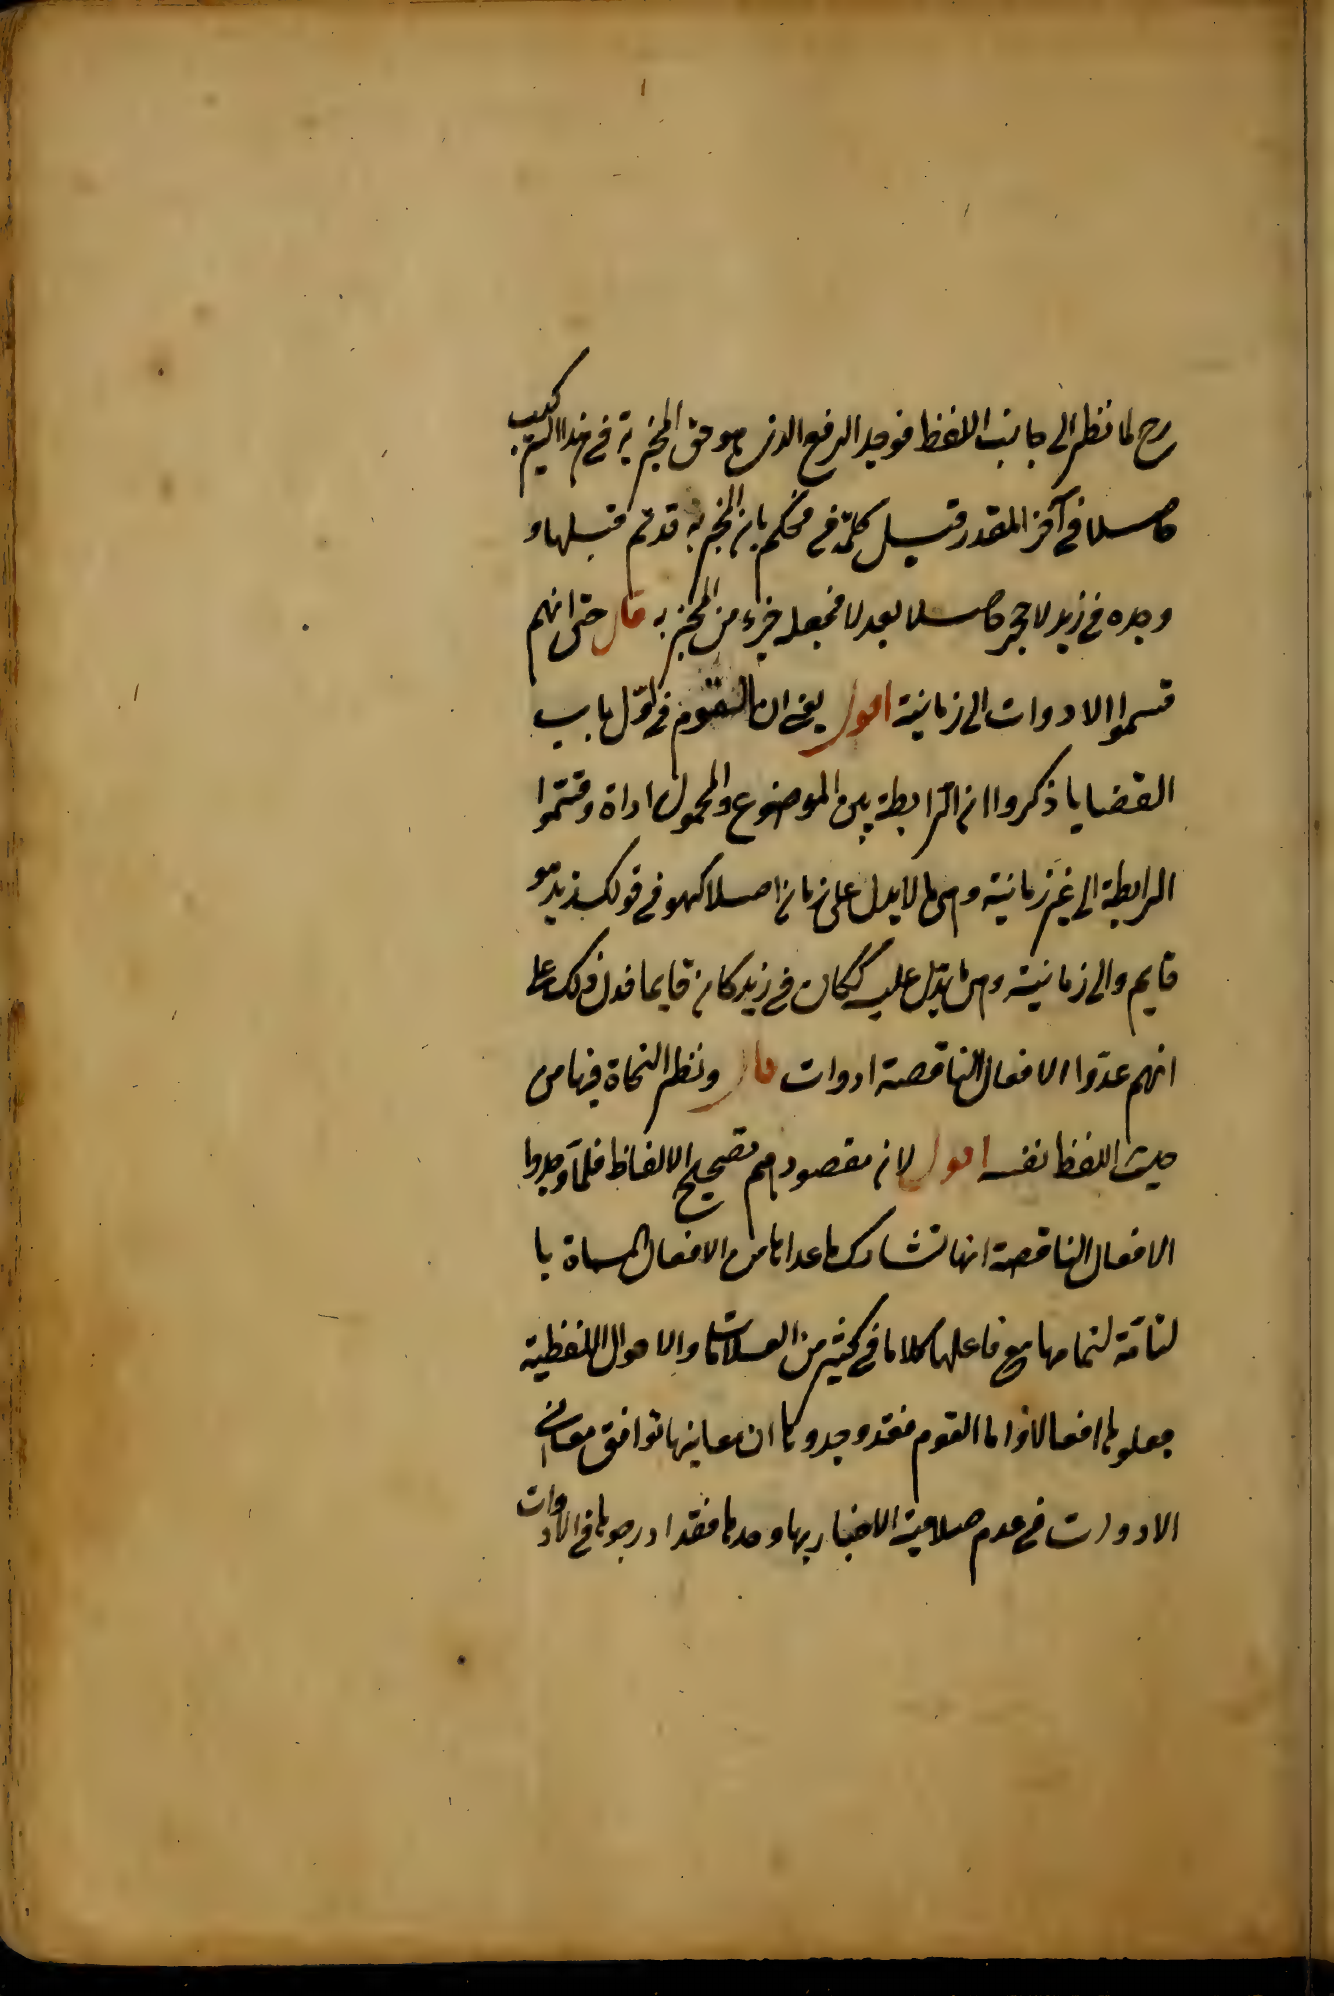 رح لما نظر الى جانب اللفظ فوجد الرفع الذى هو حق المخبر به فى هذا التركيب
حاصلا فى آخر المقدر قبيل كلمة فى فحكم بان المخبر به قد تم قبلها و
وجده فى زيد لا حجر حاصلا بعد لا فجعله جزء من المخبر به قال حتى انهم
قسموا الادوات الى زمانية اقول يعنى ان القوم فى اول باب
القضايا ذكروا ان الرابطة بين الموضوع والمحمول اداة وقسموا
الرابطة الى غير زمانية وهى ما لا يدل على زمان اصلا كهو فى قولك زيد هو
قايم والى زمانية وهى ما يدل عليه ككان فى زيد كان قايما فدل ذلك على
انهم عدوا الافعال الناقصة ادوات قال ونظر النحاة فيها من
حيث اللفظ نفسه اقول لان مقصودهم تصحيح الالفاظ فلما وجدوا
الافعال الناقصة انها تشارك ما عداها من الافعال المسماة با
لتامة لتمامها مع فاعلها كلاما فى كثير من العلامات والاحوال اللفظية
جعلوها افعالا واما القوم فقد وجدوها ان معانيها توافق معانى
الادوات فى عدم صلاحية الاخبار بها وحدها فقد ادرجوها فى الادوات